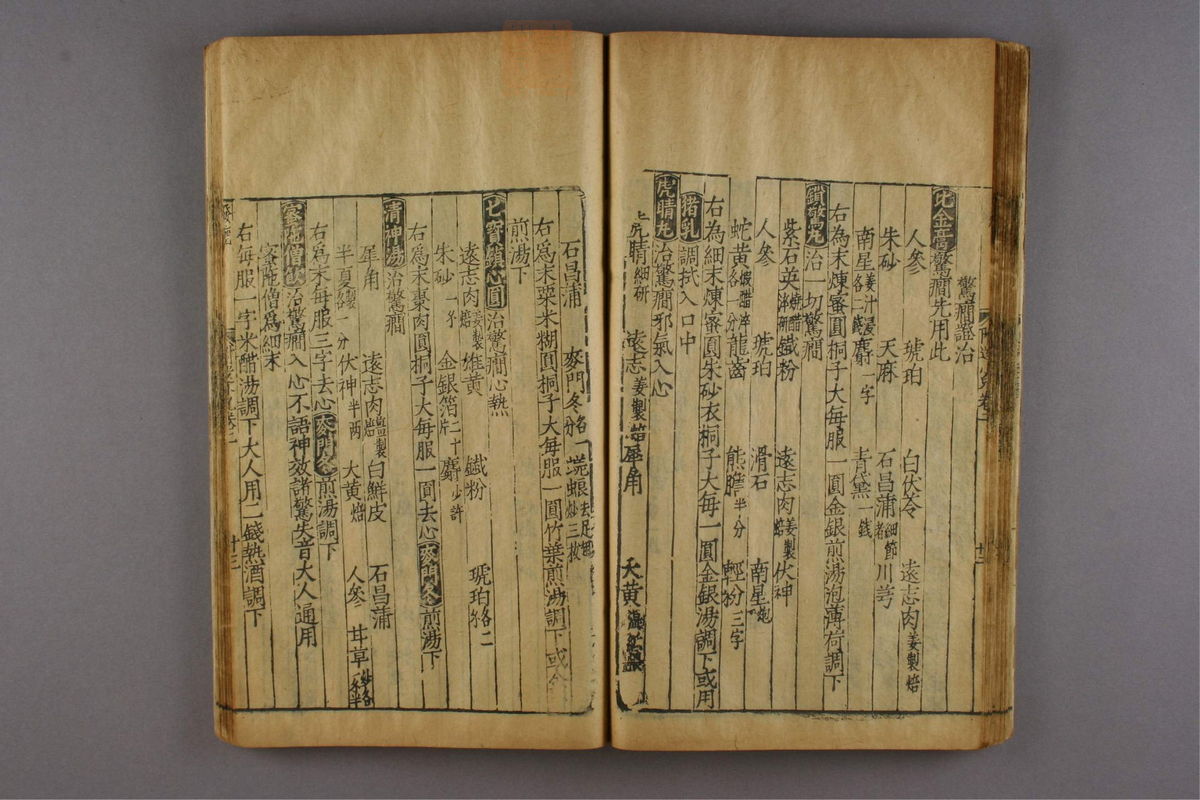 驚癇證治
比金膏驚癇先用此
人參 琥珀 白伏苓 遠志肉姜製焙
朱砂 天麻 石昌蒲細節者川芎
南星姜汁浸各二錢麝一字 青黛一錢
右為末煉蜜圓桐子大每服一圓金銀煎湯泡薄荷調下
鎮驚丸治一切驚癇
紫石英燒醋淬研鐵粉 遠志肉姜製焙伏神
人參 琥珀 滑石 南星炮
蛇黃煅醋淬各一分龍齒 熊膽半分 輕粉三字
右為細末煉蜜圓朱砂衣桐子大每一圓金銀湯調下或用
猪乳調拭入口中
虎睛丸治驚癇邪氣入心
虎睛細研 遠志姜製焙犀角 大黃
石昌蒲 麥門冬各一分 蜣蜋去足翅炒三枚
右為末粟米糊圓桐子大每服一圓竹葉煎湯調下或金
煎湯下
七寶鎮心圓治驚癇心熱
遠志肉姜製焙雄黃 鐵粉 琥珀各二
朱砂一分 金銀箔二十片 麝少許
右為末棗肉圓桐子大每服一圓去心麥門冬煎湯下
清神湯治驚癇
犀角 遠志肉姜製焙白鮮皮 石昌蒲
半夏製各一分伏神半兩 大黃焙 人參 甘草
右為末每服三字去心麥門冬煎湯調下
蜜陀僧散治驚癇入心不語神效諸驚失音大人通用
蜜陀僧爲細末
右每服一字米醋湯調下大人用二錢熱酒調下
十三